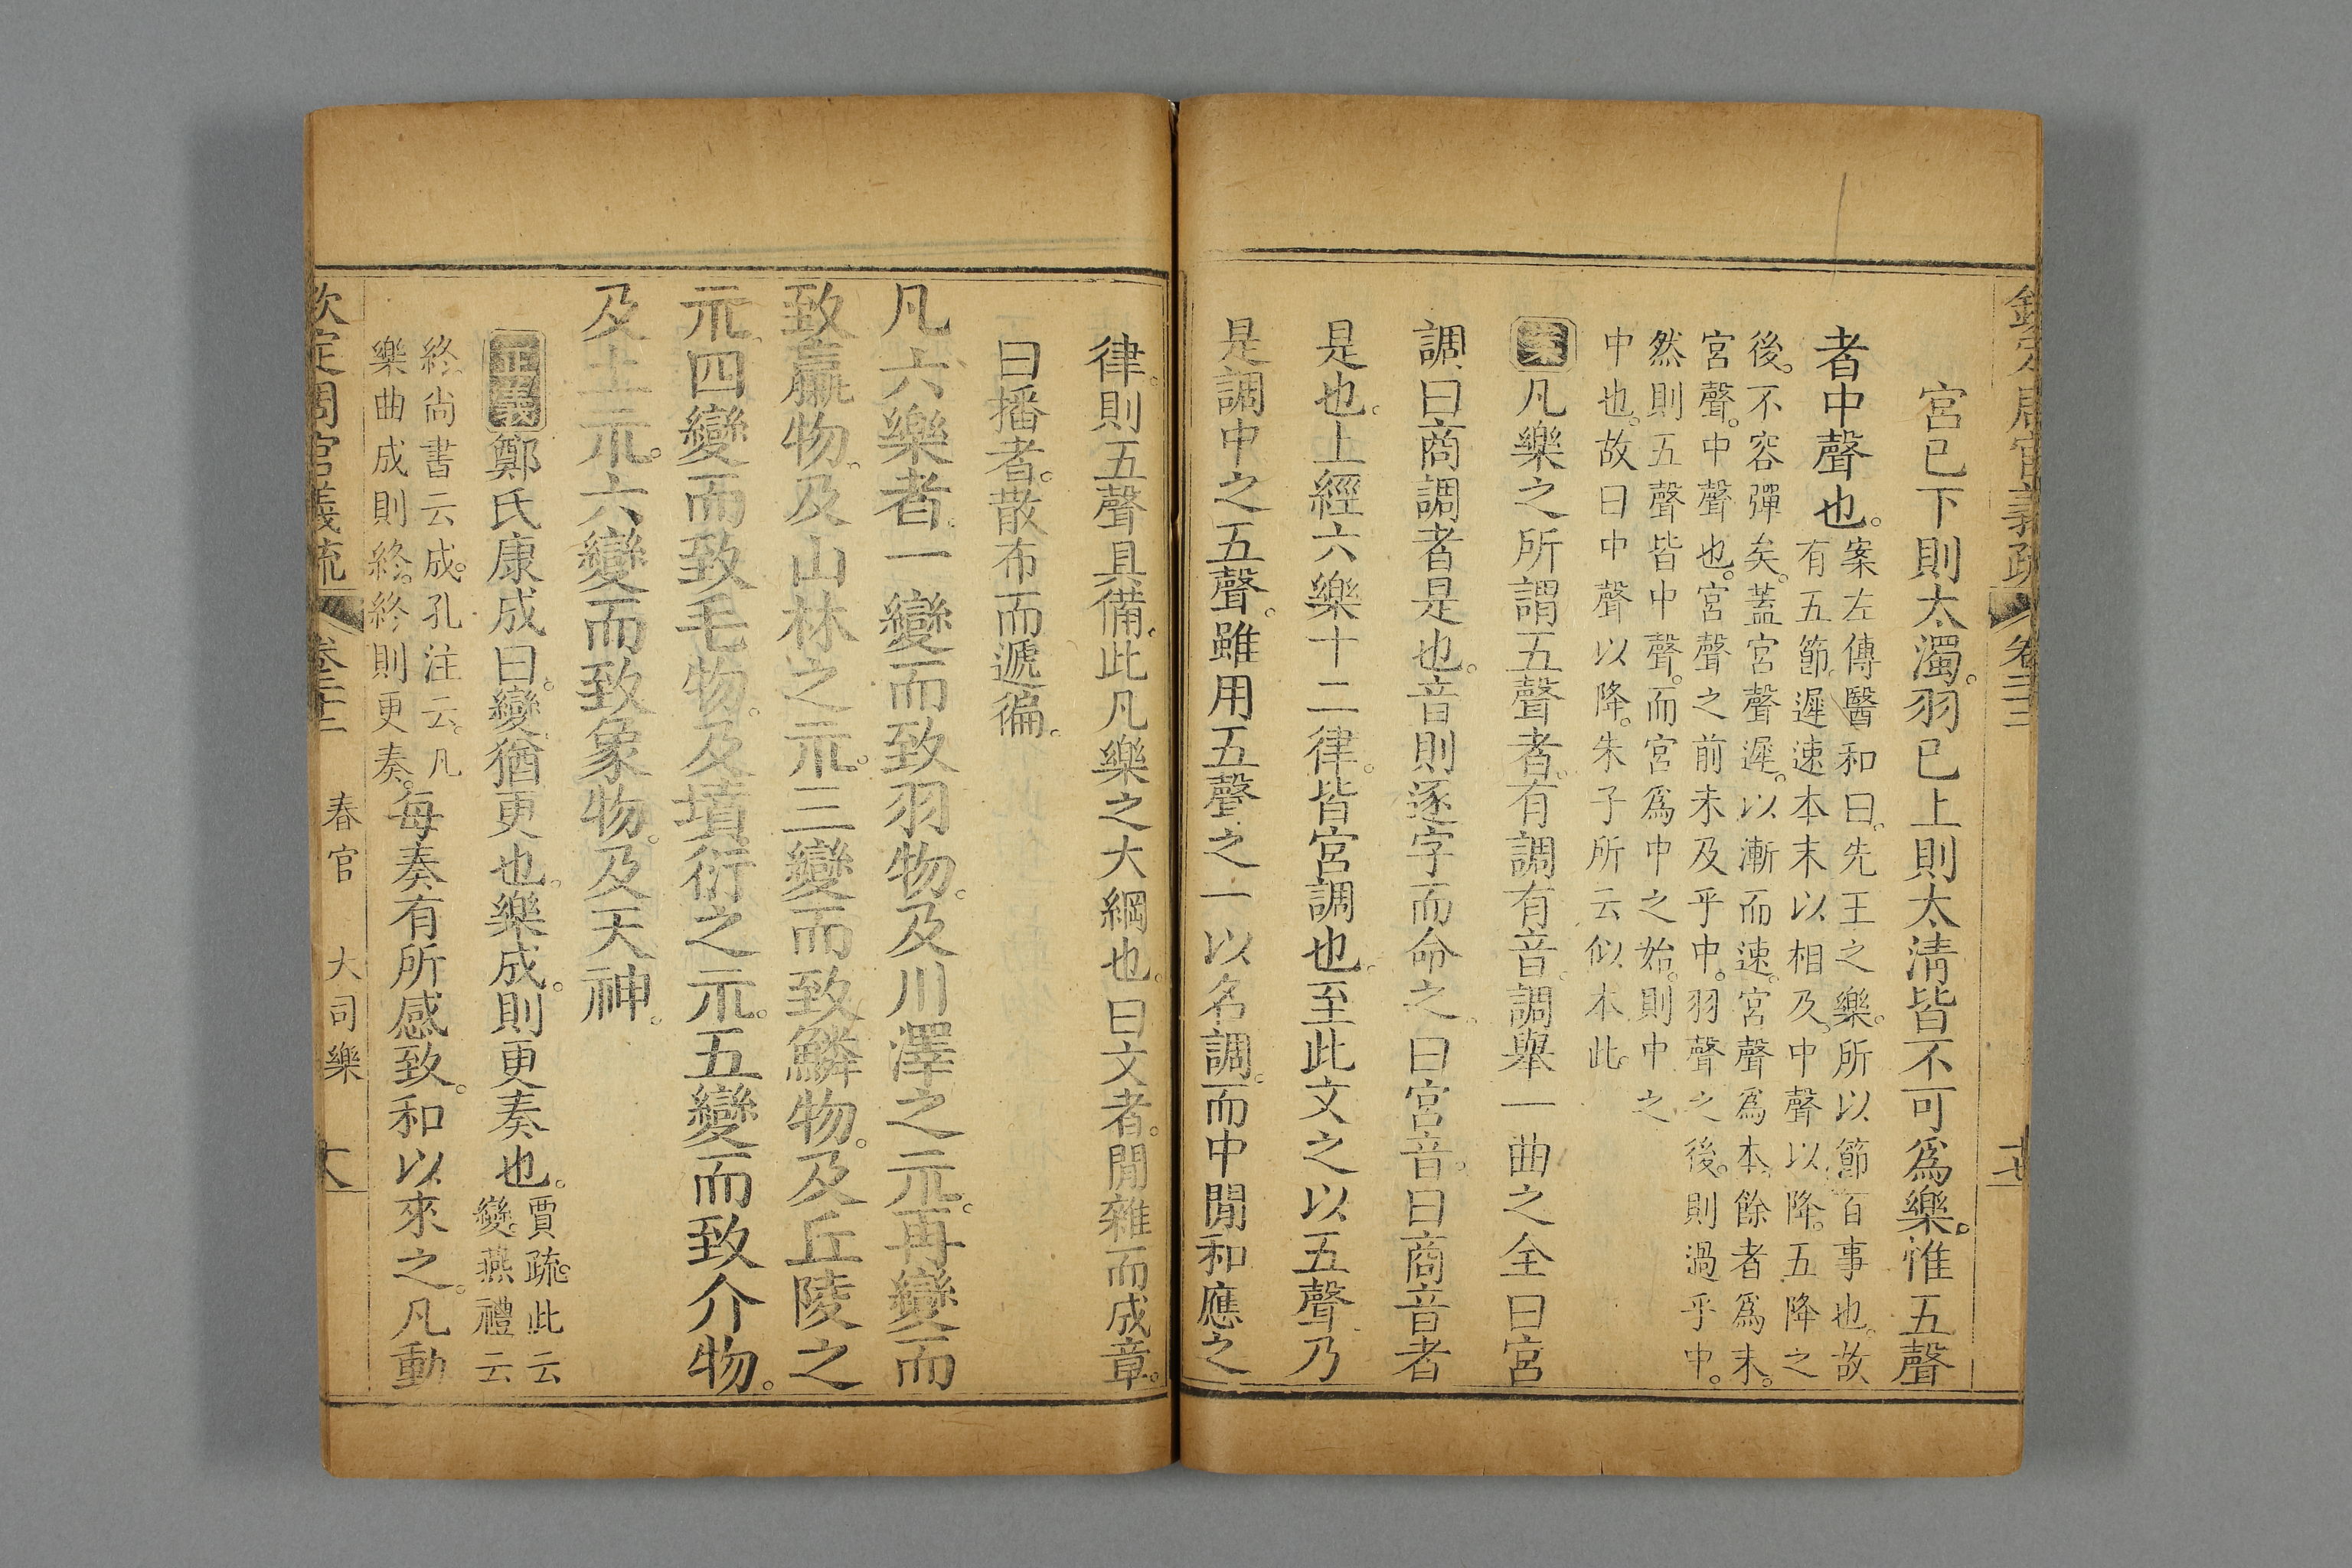 欽定周官義疏 卷二十二 十七
宮已下則太濁。羽已上則太清皆不可爲樂。惟五聲
者中聲也。
案左傳醫和曰。先王之樂。所以節百事也。故
有五節。遲速本末以相及。中聲以降。五降之
後。不容彈矣。蓋宮聲遲。以漸而速。宮聲爲本。餘者爲末。
宮聲。中聲也。宮聲之前未及乎中。羽聲之後。則過乎中。
然則五聲皆中聲。而宮爲中之始。則中之
中也。故曰中聲以降。朱子所云似本此。
案凡樂之所謂五聲者。有調有音。調舉一曲之全曰宮
調曰商調者是也。音則逐字而命之。曰宮音。曰商音者
是也。上經六樂十二律。皆宮調也。至此文之以五聲乃
是調中之五聲。雖用五聲之一以名調。而中閒和應之
律。則五聲具備。此凡樂之大綱也。曰文者。閒雜而成章。
曰播者。散布而遞徧。
凡六樂者。一變而致羽物。及川澤之示。再變而
致臝物。及山林之示。三變而致鱗物。及丘陵之
示。四變而致毛物。及墳衍之示。五變而致介物。
及土示。六變而致象物。及天神。
正義鄭氏康成曰。變猶更也。樂成。則更奏也。
賈疏。此云
變。燕禮云
終。尚書云成。孔注云。凡
樂曲成則終。終則更奏。
每奏有所感致。和以來之。凡動
欽定周官義疏 卷二十二 春官 大司樂 大